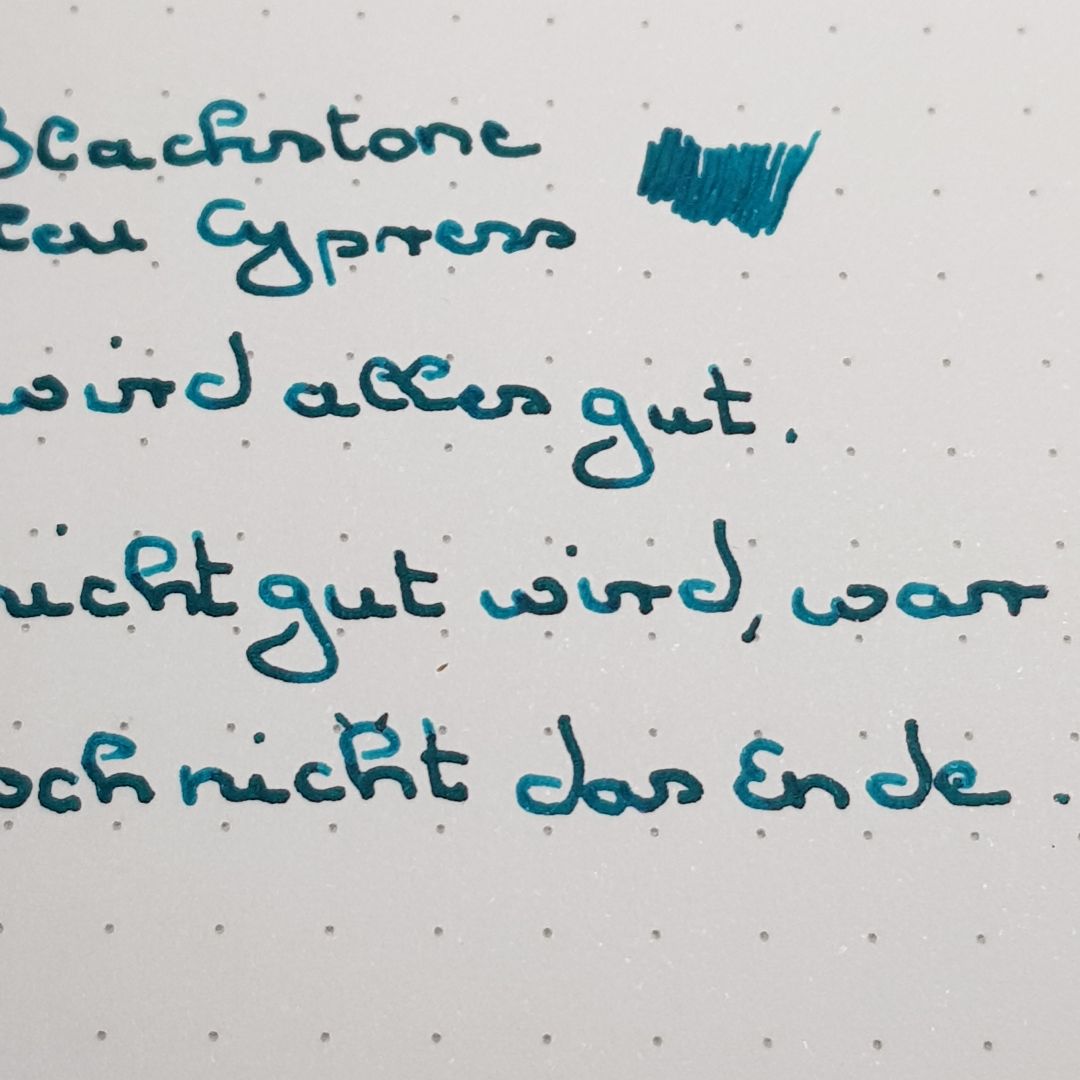 Blackstone
leu Cypress
wird alles gut.
nicht gut wird, war
och nicht das Ende.